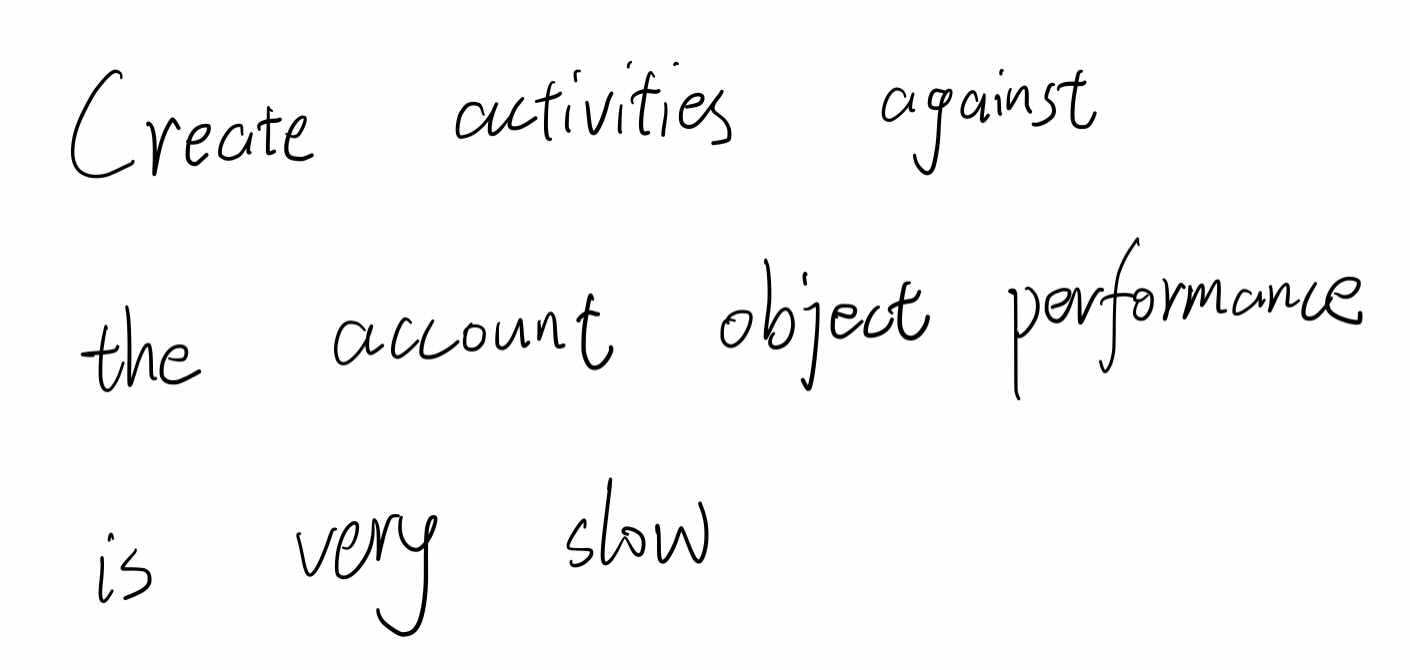 Create activities against
the account object performance
is very slow